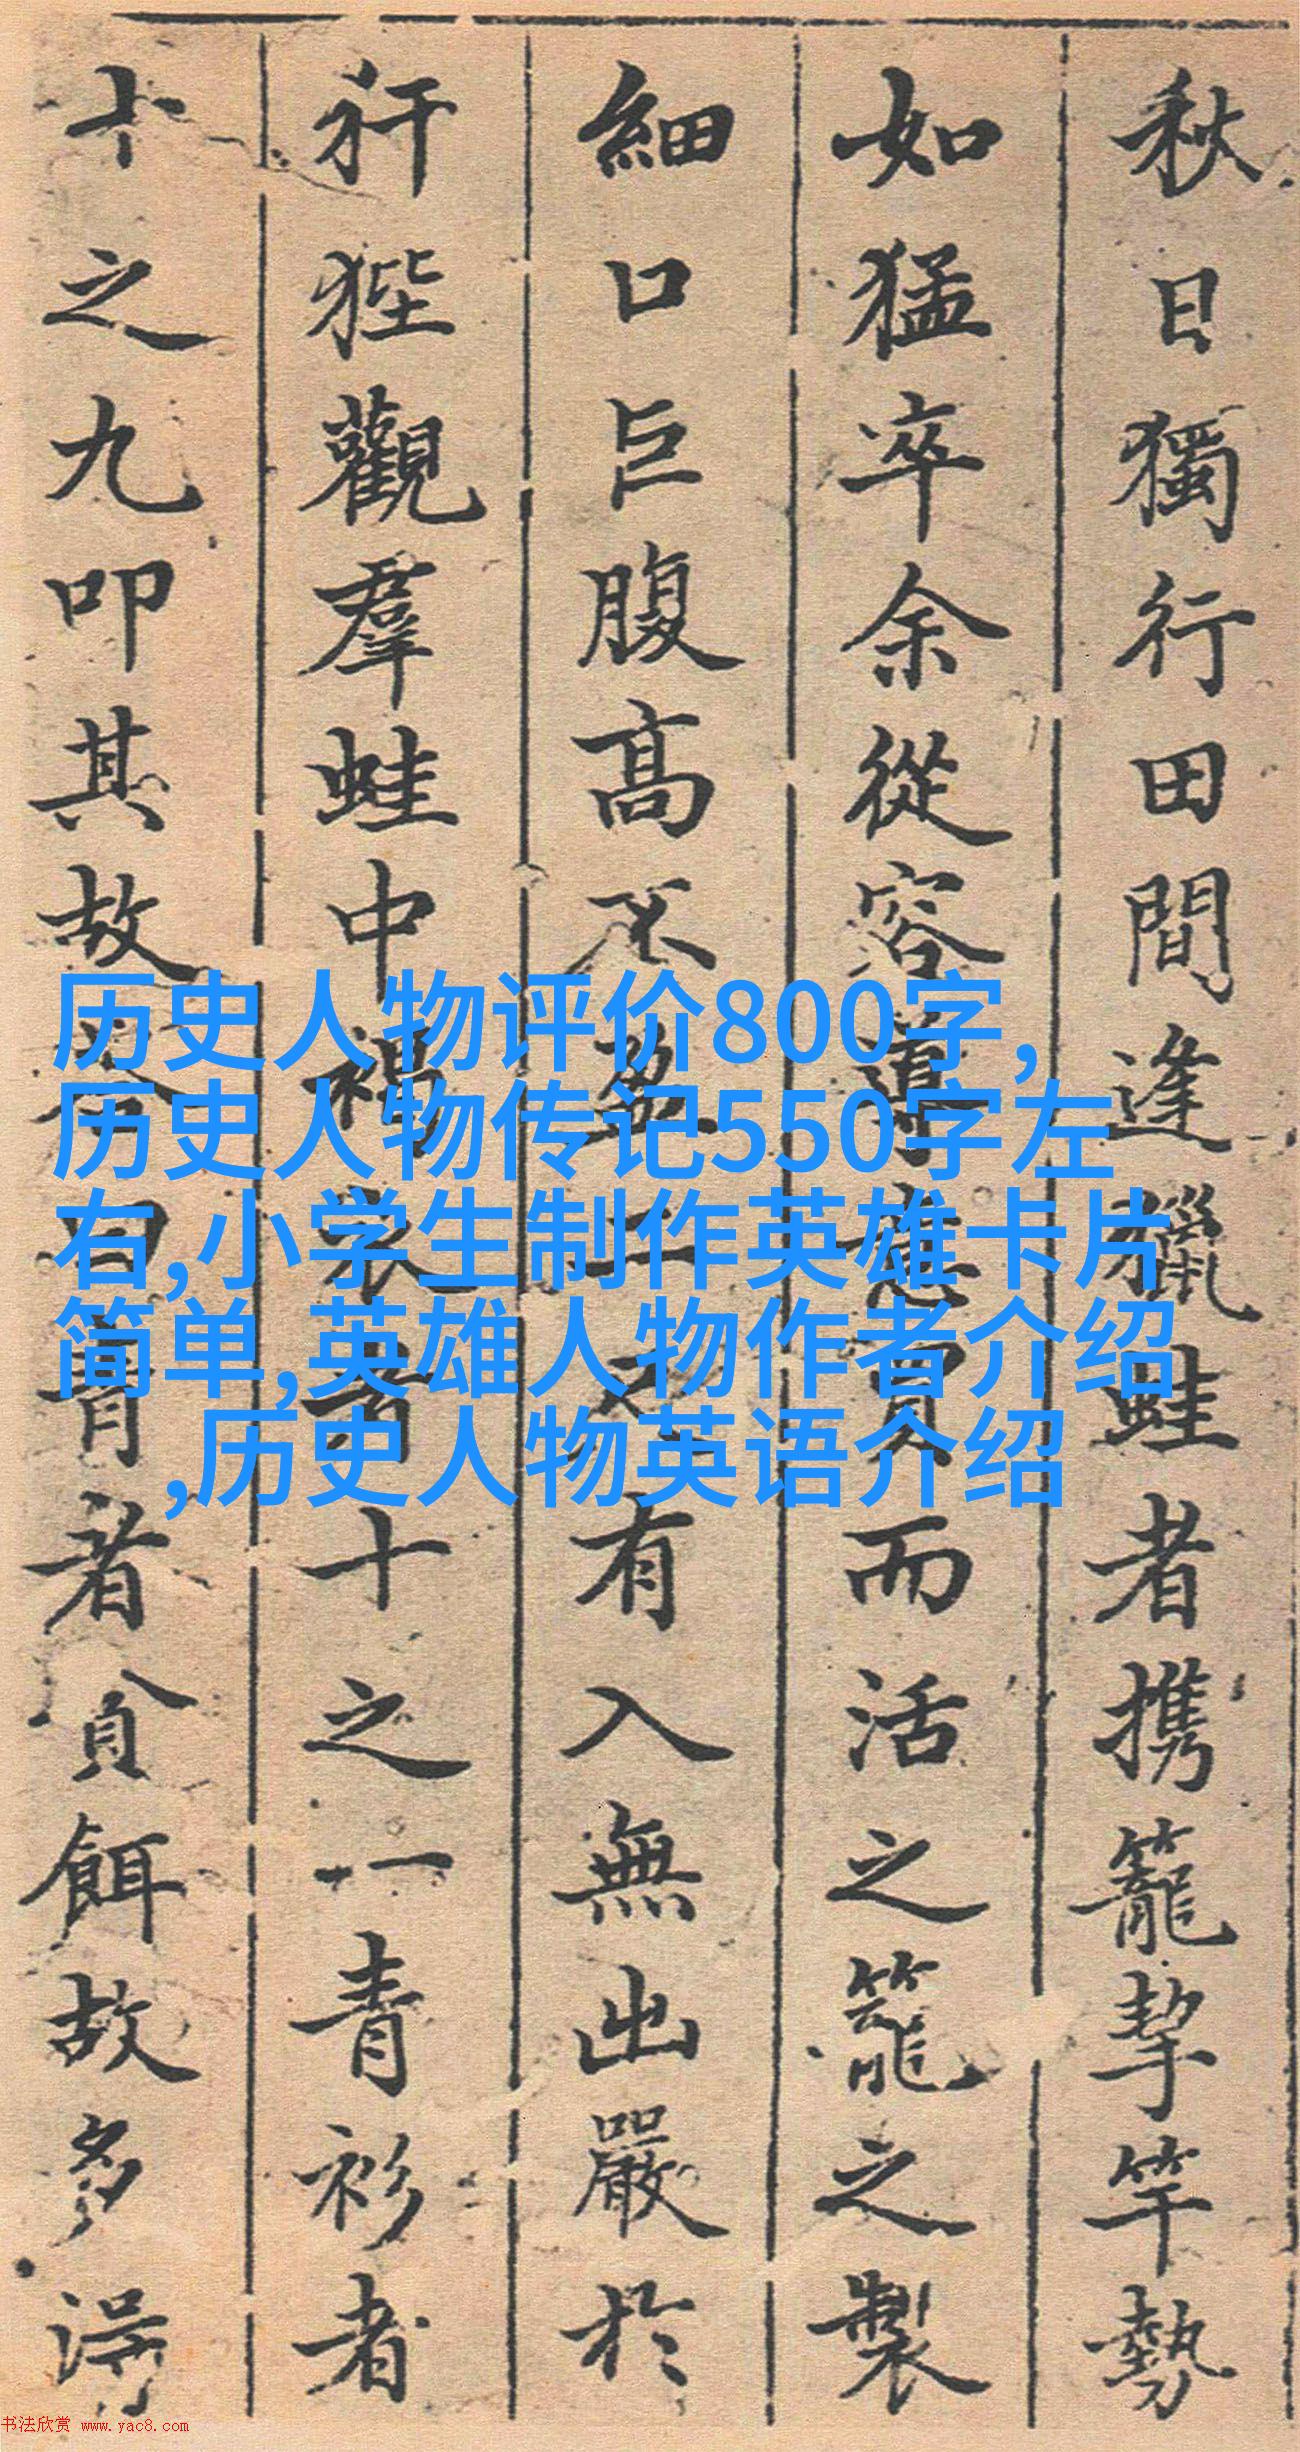 秋日獨行田間逢獵蛙者携籠挈竿勢
如猛卒余從容意而活之籠之製
細口巨腹高不盈二尺有入無出嚴於
犴狴觀羣蛙中褐衣者十之一青衫者
十之九叩其故答曰青者貪餌故多得
历史人物评价800字,
历史人物传记550字左
右,小学生制作英雄卡片
简单,英雄人物作者介绍
,历史人物英语介绍
书法欣赏 www.yac8.com